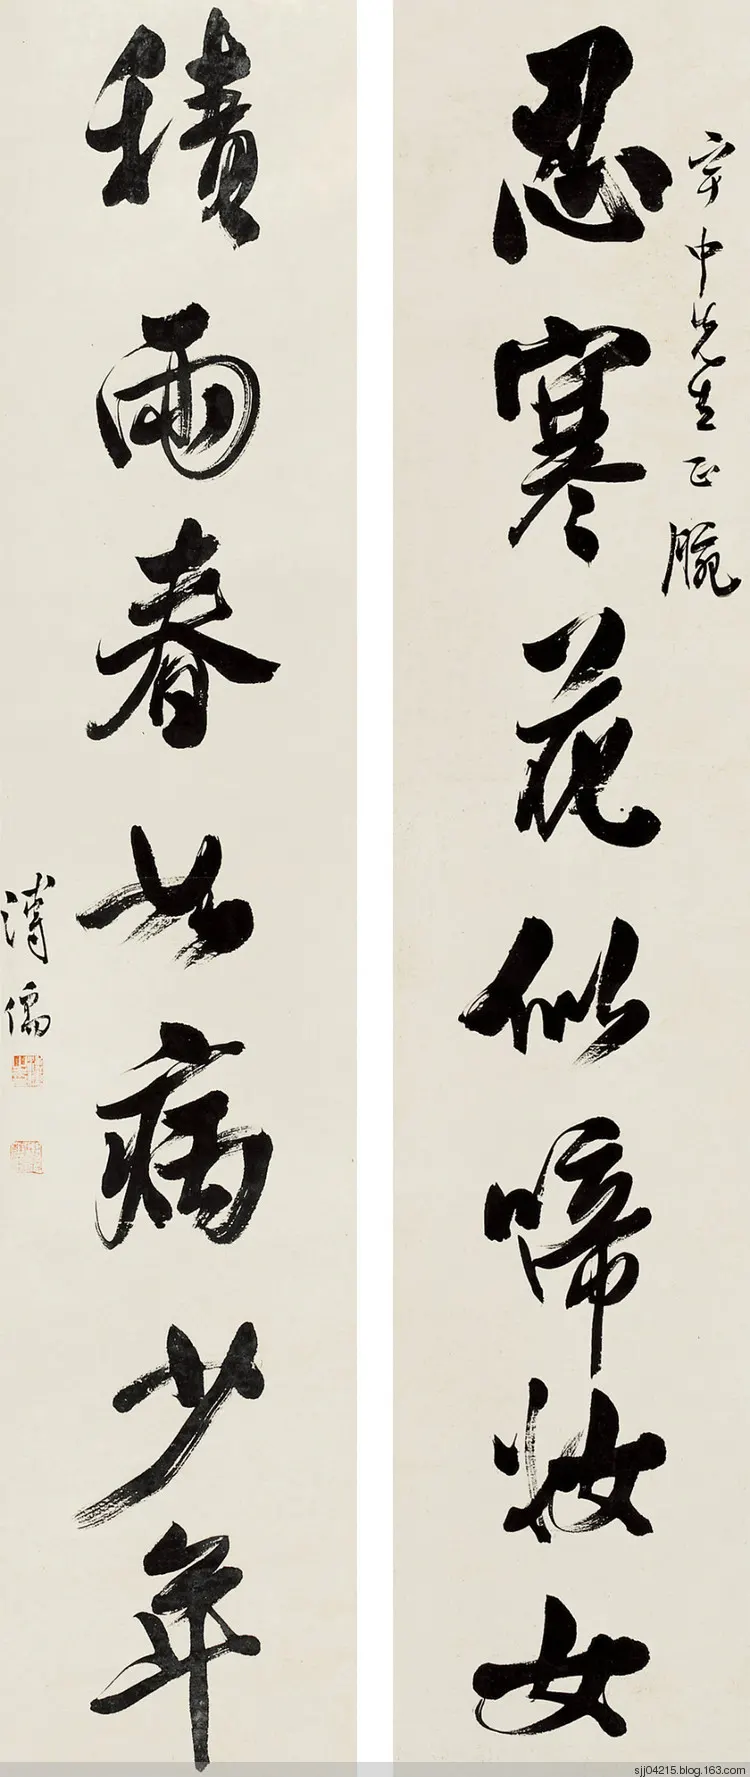 宇中先生正腕
忍寒花似啼妝女
積雨春如病少年
溥儒
sjj04215.blog.163.com